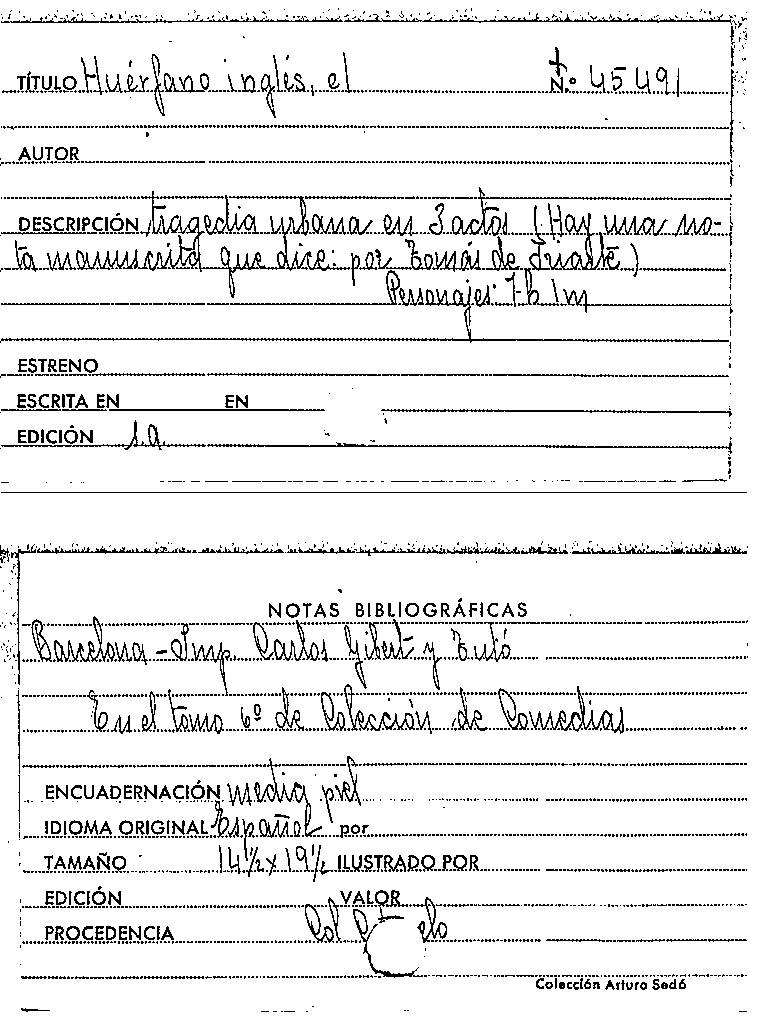 TÍTULO Huérfano inglés, el N.º 45491
AUTOR
DESCRIPCIÓN tragedia urbana en 3 actos (Hay una no-
ta manuscrita que dice: por Tomás de Iriarte)
Personajes: 7h 1m
ESTRENO
ESCRITA EN EN
EDICIÓN s.a.
NOTAS BIBLIOGRÁFICAS
Barcelona - Imp. Carlos Gibert y Tutó
En el tomo 6º de Colección de Comedias
ENCUADERNACIÓN media piel
IDIOMA ORIGINAL Español por
TAMAÑO 14½ x 19½ ILUSTRADO POR
EDICIÓN VALOR
PROCEDENCIA Col
Colección Arturo Sedó